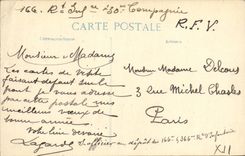 166e Rt Infie 30me Compagnie
R.F.V.
CARTE POSTALE
Monsieur & Madame
Les cartes de visite
faisant défaut dans le
front je vous adresse
par cette postale mes
meilleurs vœux de
bonne année
Votre bien dévoué
Lagarde S. officier au dépôt du 166e & 366e Rt d'Infanterie
Monsieur Madame Delcous
3 rue Michel Chasles
Paris
XII